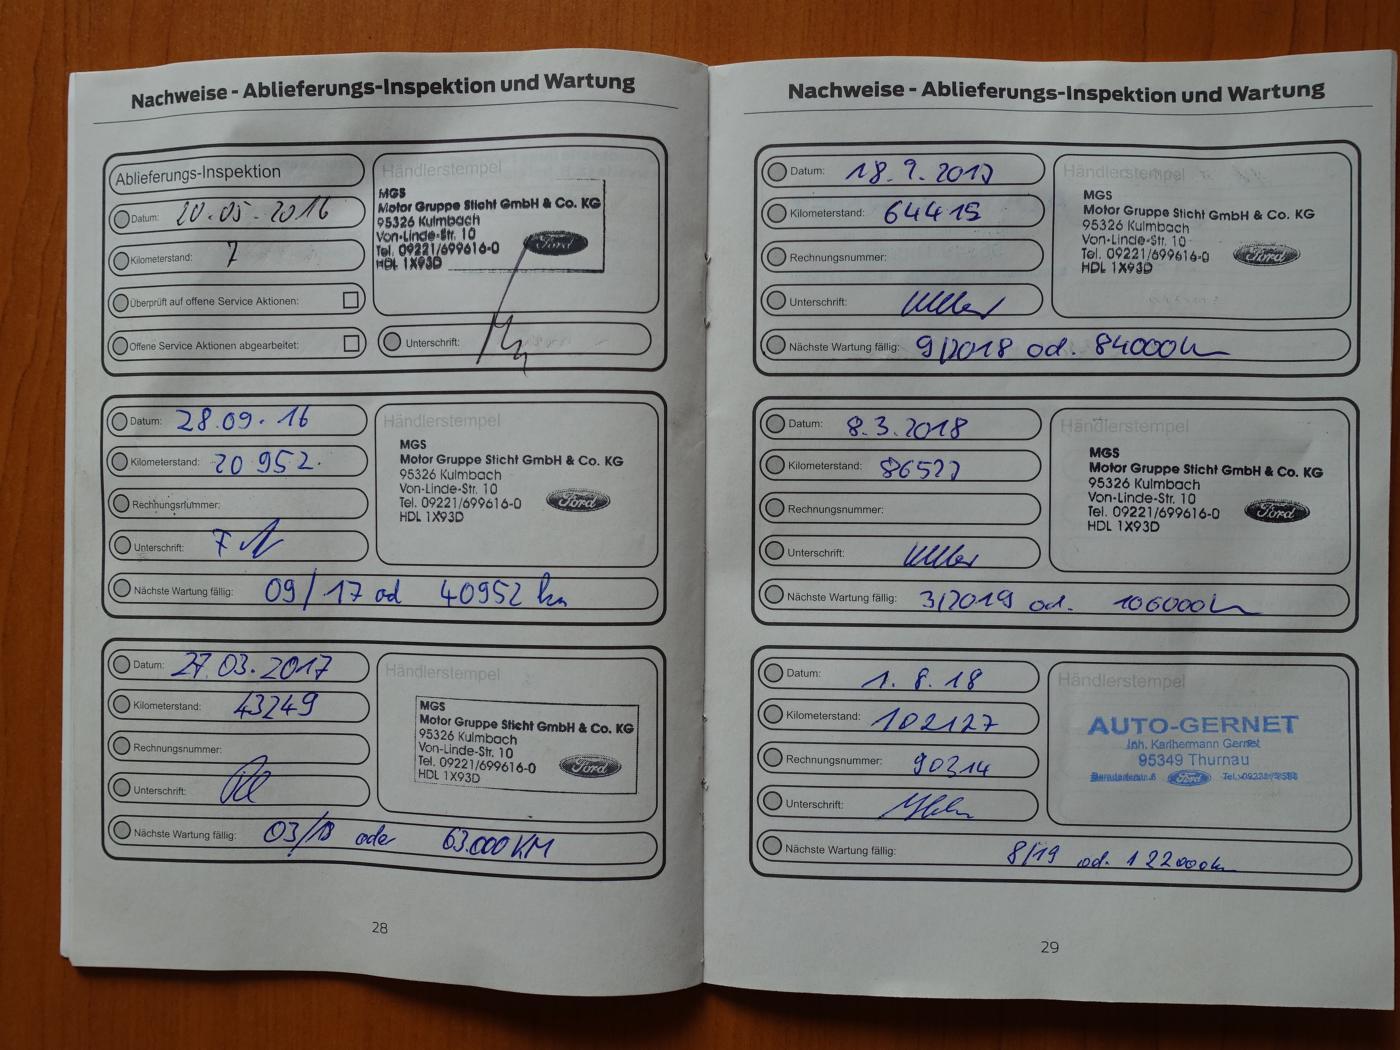 Nachweise - Ablieferungs-Inspektion und Wartung
Ablieferungs-Inspektion
Datum: 20.05.2016
Kilometerstand: 7
Überprüft auf offene Service Aktionen:
Offene Service Aktionen abgearbeitet:
Händlerstempel
MGS
Motor Gruppe Sticht GmbH & Co. KG
95326 Kulmbach
Von-Linde-Str. 10
Tel. 09221/699616-0
HDL 1X93D
Ford
Unterschrift:
Datum: 28.09.16
Kilometerstand: 20952.
Rechnungsnummer:
Unterschrift:
Nächste Wartung fällig: 09/17 od 40952 km
Händlerstempel
MGS
Motor Gruppe Sticht GmbH & Co. KG
95326 Kulmbach
Von-Linde-Str. 10
Tel. 09221/699616-0
HDL 1X93D
Ford
Datum: 27.03.2017
Kilometerstand: 43249
Rechnungsnummer:
Unterschrift:
Nächste Wartung fällig: 03/18 oder 63.000 KM
Händlerstempel
MGS
Motor Gruppe Sticht GmbH & Co. KG
95326 Kulmbach
Von-Linde-Str. 10
Tel. 09221/699616-0
HDL 1X93D
Ford
28
Nachweise - Ablieferungs-Inspektion und Wartung
Datum: 18.9.2017
Kilometerstand: 64415
Rechnungsnummer:
Unterschrift:
Nächste Wartung fällig: 9/2018 od. 84000km
Händlerstempel
MGS
Motor Gruppe Sticht GmbH & Co. KG
95326 Kulmbach
Von-Linde-Str. 10
Tel. 09221/699616-0
HDL 1X93D
Ford
Datum: 8.3.2018
Kilometerstand: 86527
Rechnungsnummer:
Unterschrift:
Nächste Wartung fällig: 3/2019 od. 106000km
Händlerstempel
MGS
Motor Gruppe Sticht GmbH & Co. KG
95326 Kulmbach
Von-Linde-Str. 10
Tel. 09221/699616-0
HDL 1X93D
Ford
Datum: 1.8.18
Kilometerstand: 102127
Rechnungsnummer: 90314
Unterschrift:
Nächste Wartung fällig: 8/19 od. 122000km
Händlerstempel
AUTO-GERNET
Inh. Karlhermann Gernet
95349 Thurnau
Ford
29